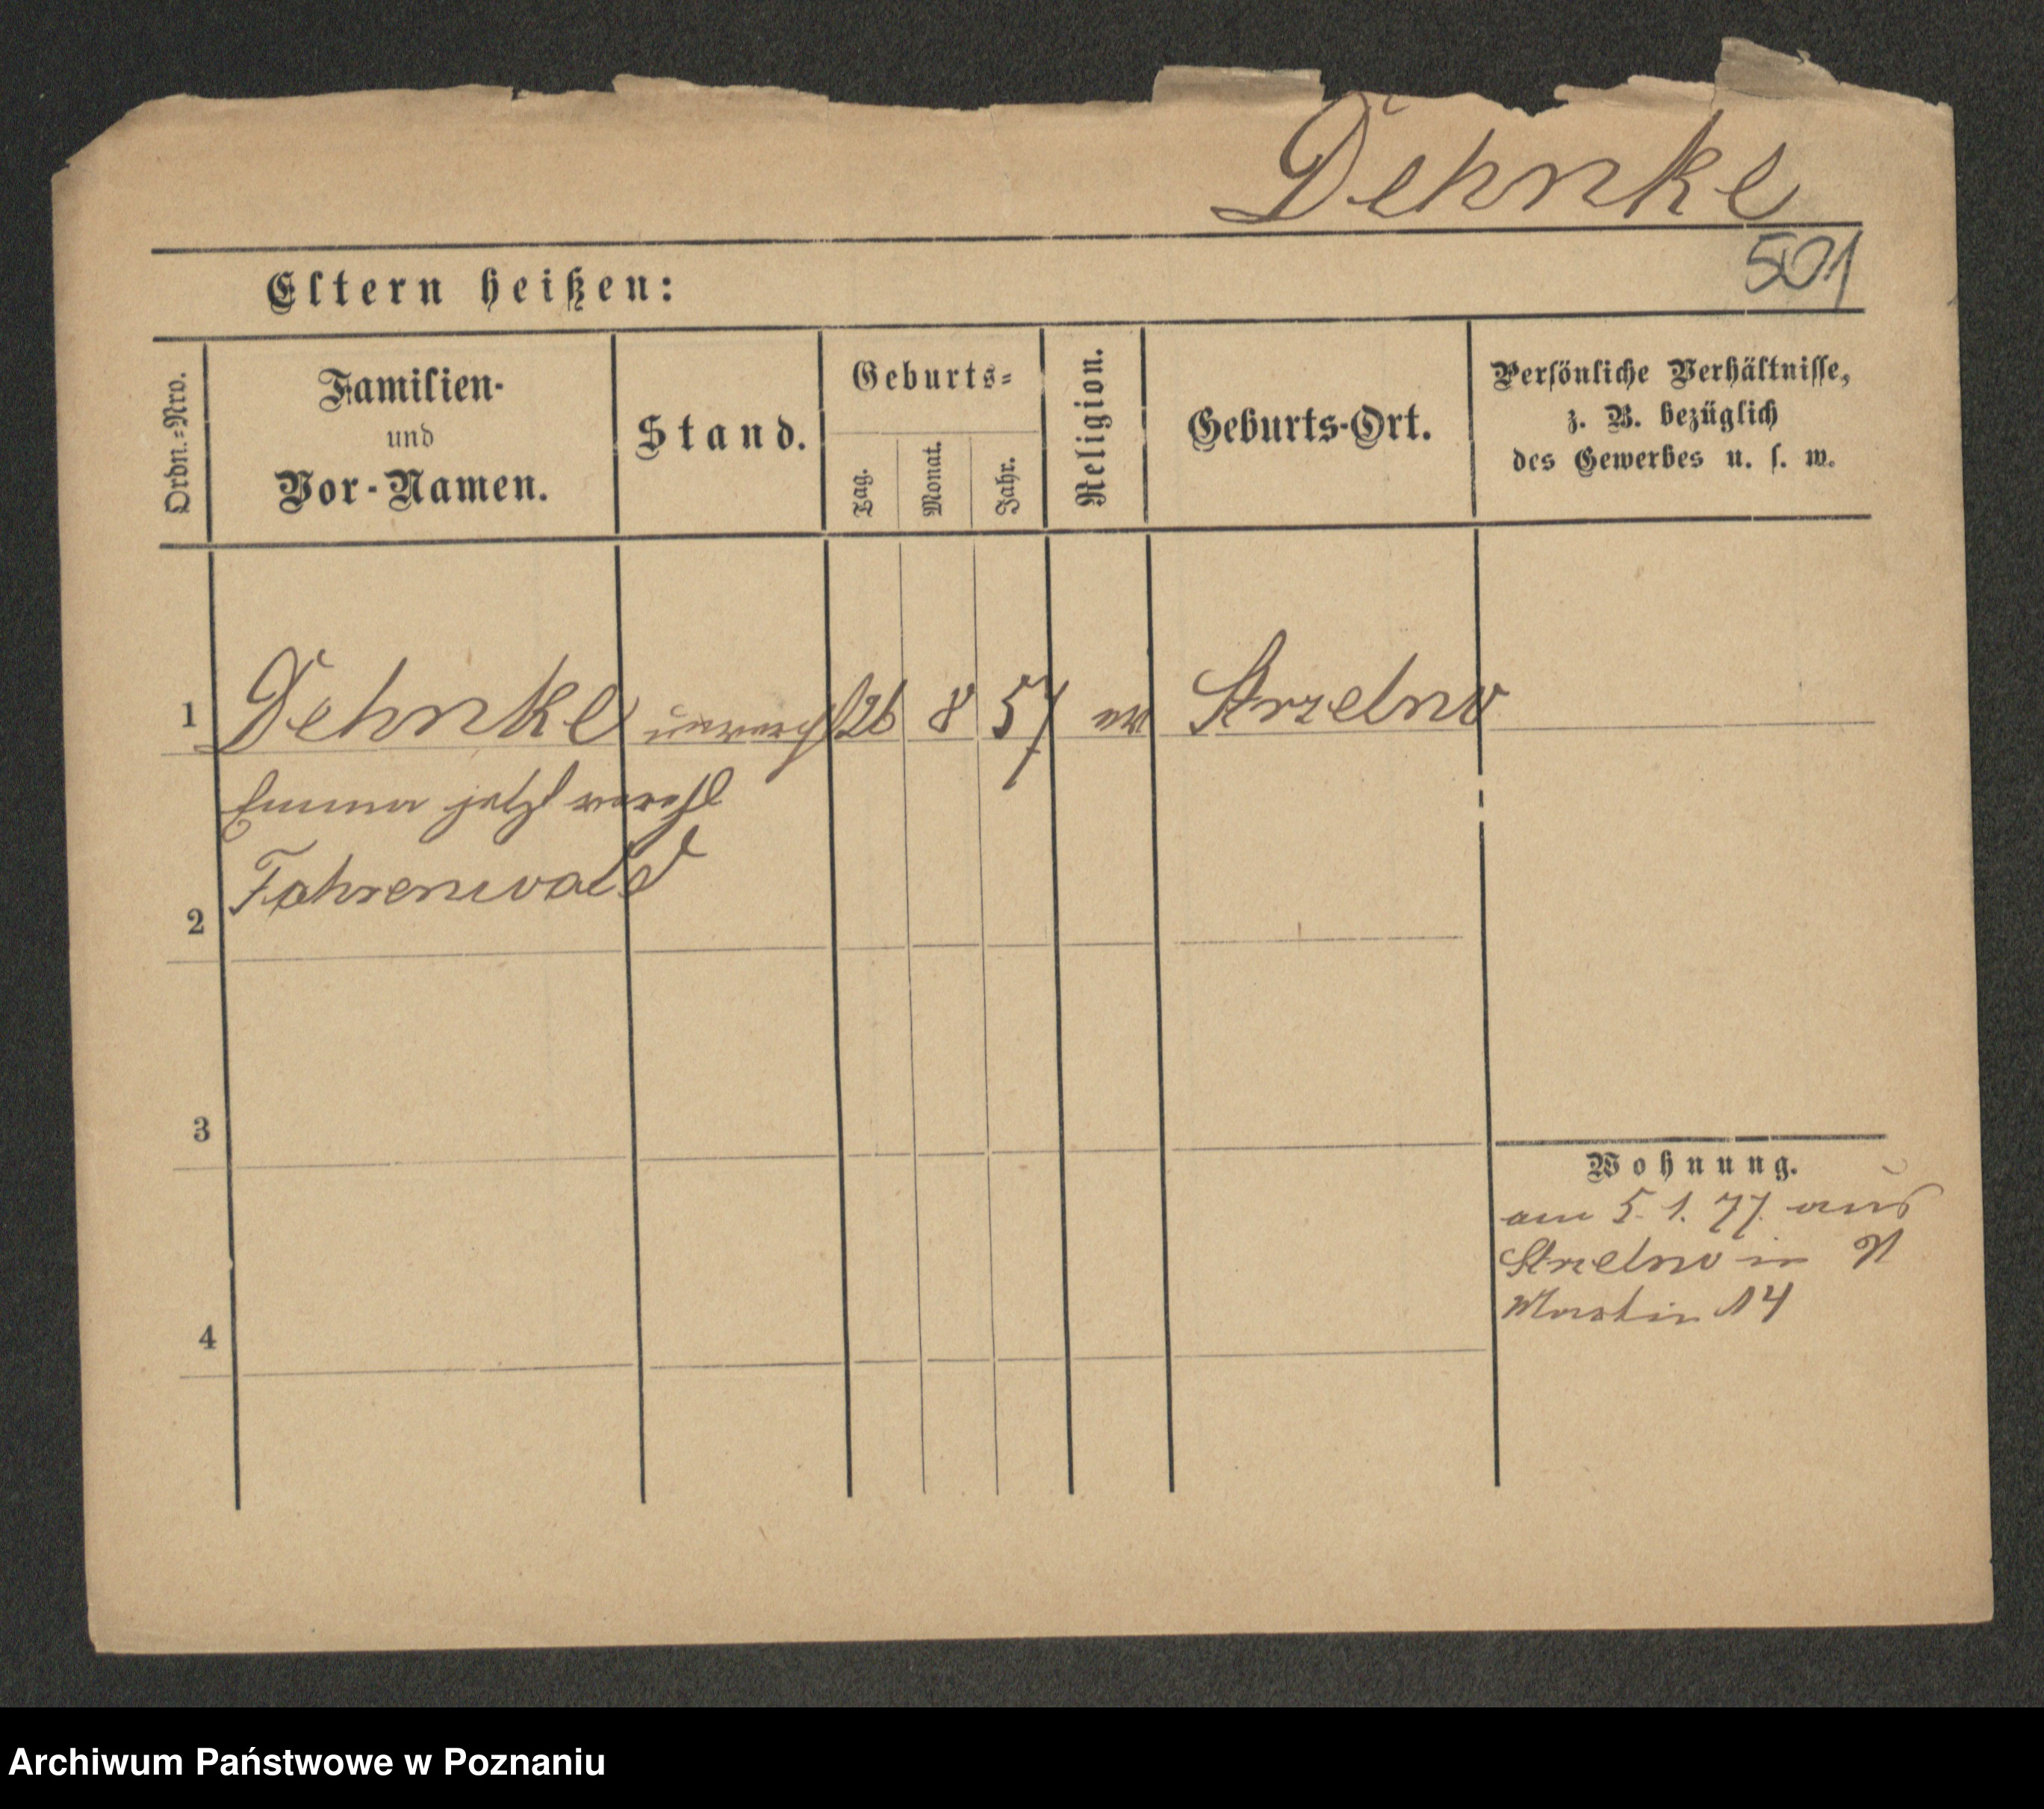 Dehnke
501
Eltern heißen:
Ordn.-Nro.
Familien-
und
Vor-Namen.
Stand.
Geburts-
Tag.
Monat.
Jahr.
Religion.
Geburts-Ort.
Persönliche Verhältnisse,
z. B. bezüglich
des Gewerbes u. s. w.
1 Dehnke unverehl 26 8 57 ev Strzelno
Emma jetzt verehl
Fahrenwald
2
3
Wohnung.
am 5. 1. 77. aus
Strzelno in
Martin 14
4
Archiwum Państwowe w Poznaniu